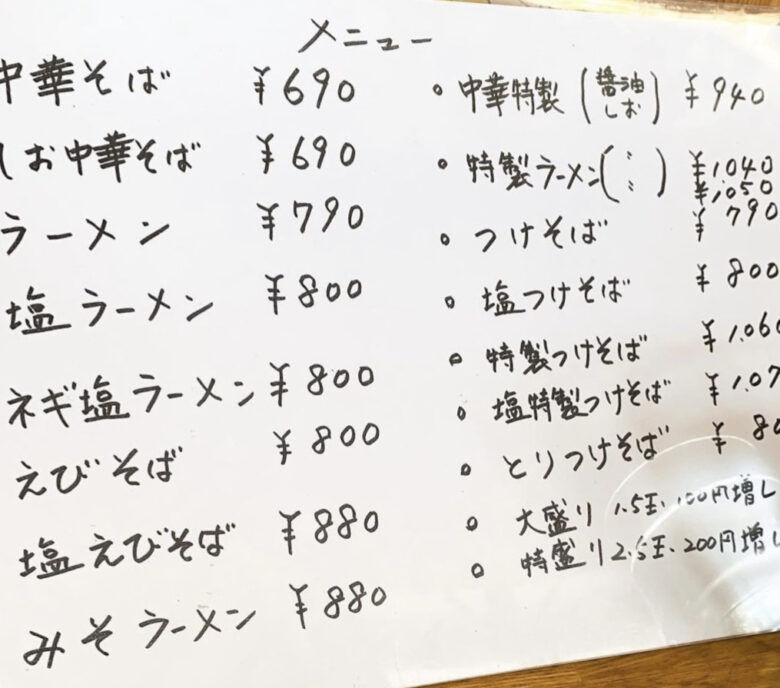 メニュー
中華そば ¥690
しお中華そば ¥690
ラーメン ¥790
塩ラーメン ¥800
ネギ塩ラーメン ¥800
えびそば ¥800
塩えびそば ¥880
みそラーメン ¥880
・中華特製(醤油 しお) ¥940
・特製ラーメン(〃 〃) ¥1,040 ¥1,050
・つけそば ¥790
・塩つけそば ¥800
・特製つけそば ¥1,060
・塩特製つけそば ¥1,07
・とりつけそば ¥80
・大盛り 1.5玉、100円増し
・特盛り 2.5玉、200円増し